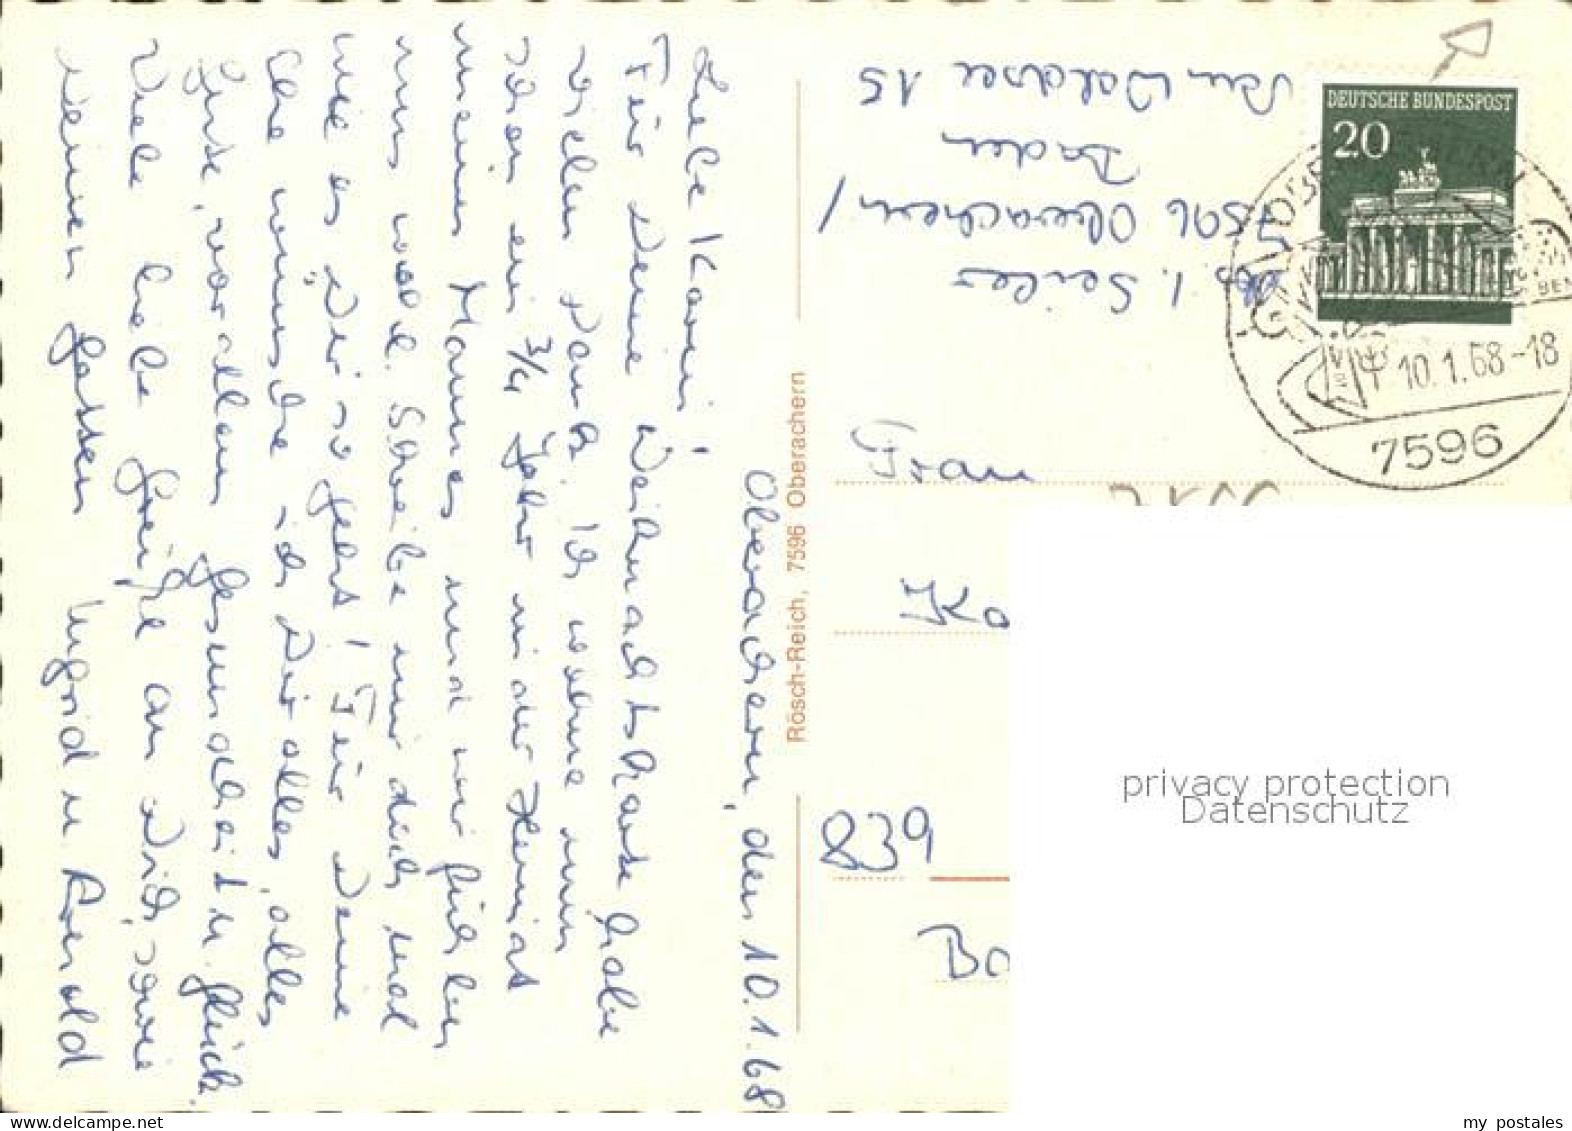 Oberachern, den 10.1.68
Liebe Karin!
Für Deine Weihnachtskarte habe
vielen Dank. Ich wohne nun
schon ein 3/4 Jahr in der Heimat
meines Mannes und wir fühlen
uns wohl. Schreibe mir doch mal
wie es Dir so geht! Für Deine
Ehe wünsche ich Dir alles, alles
Gute, vor allem Gesundheit u. Glück.
Viele liebe Grüße an Dich, sowie
Deinen Gatten Ingrid u. Arnold
Rösch-Reich, 7596 Oberachern
I. Seiler
7596 Oberachern/
Baden
Am Waldsee 15
DEUTSCHE BUNDESPOST
20
10.1.68-18
7596
Frau
Ko
839
Ba
privacy protection
Datenschutz
delcampe.net
my_postales